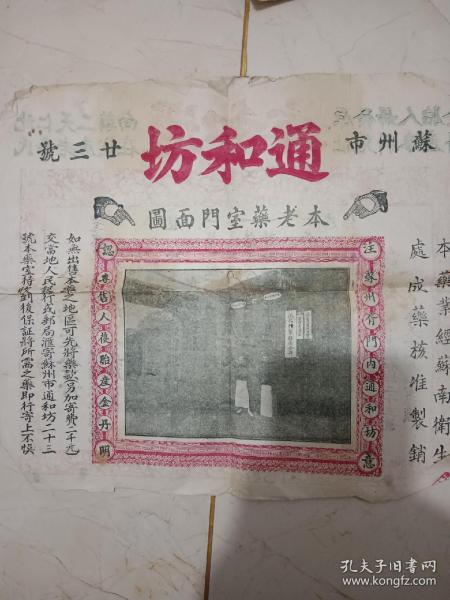 蘇州市
通和坊
廿三號
本老藥室門面圖
本藥業經蘇南衛生
處成藥核准製銷
注意
認明
蘇州行門內通和坊
專售人後胎產金丹
如無出售本藥之地區可先將藥款另加寄費二千元
交當地人民銀行或郵局滙寄蘇州市通和坊二十三
號本藥室待收到後保証將所需之藥即行寄上不悞
孔夫子旧书网
www.kongfz.com